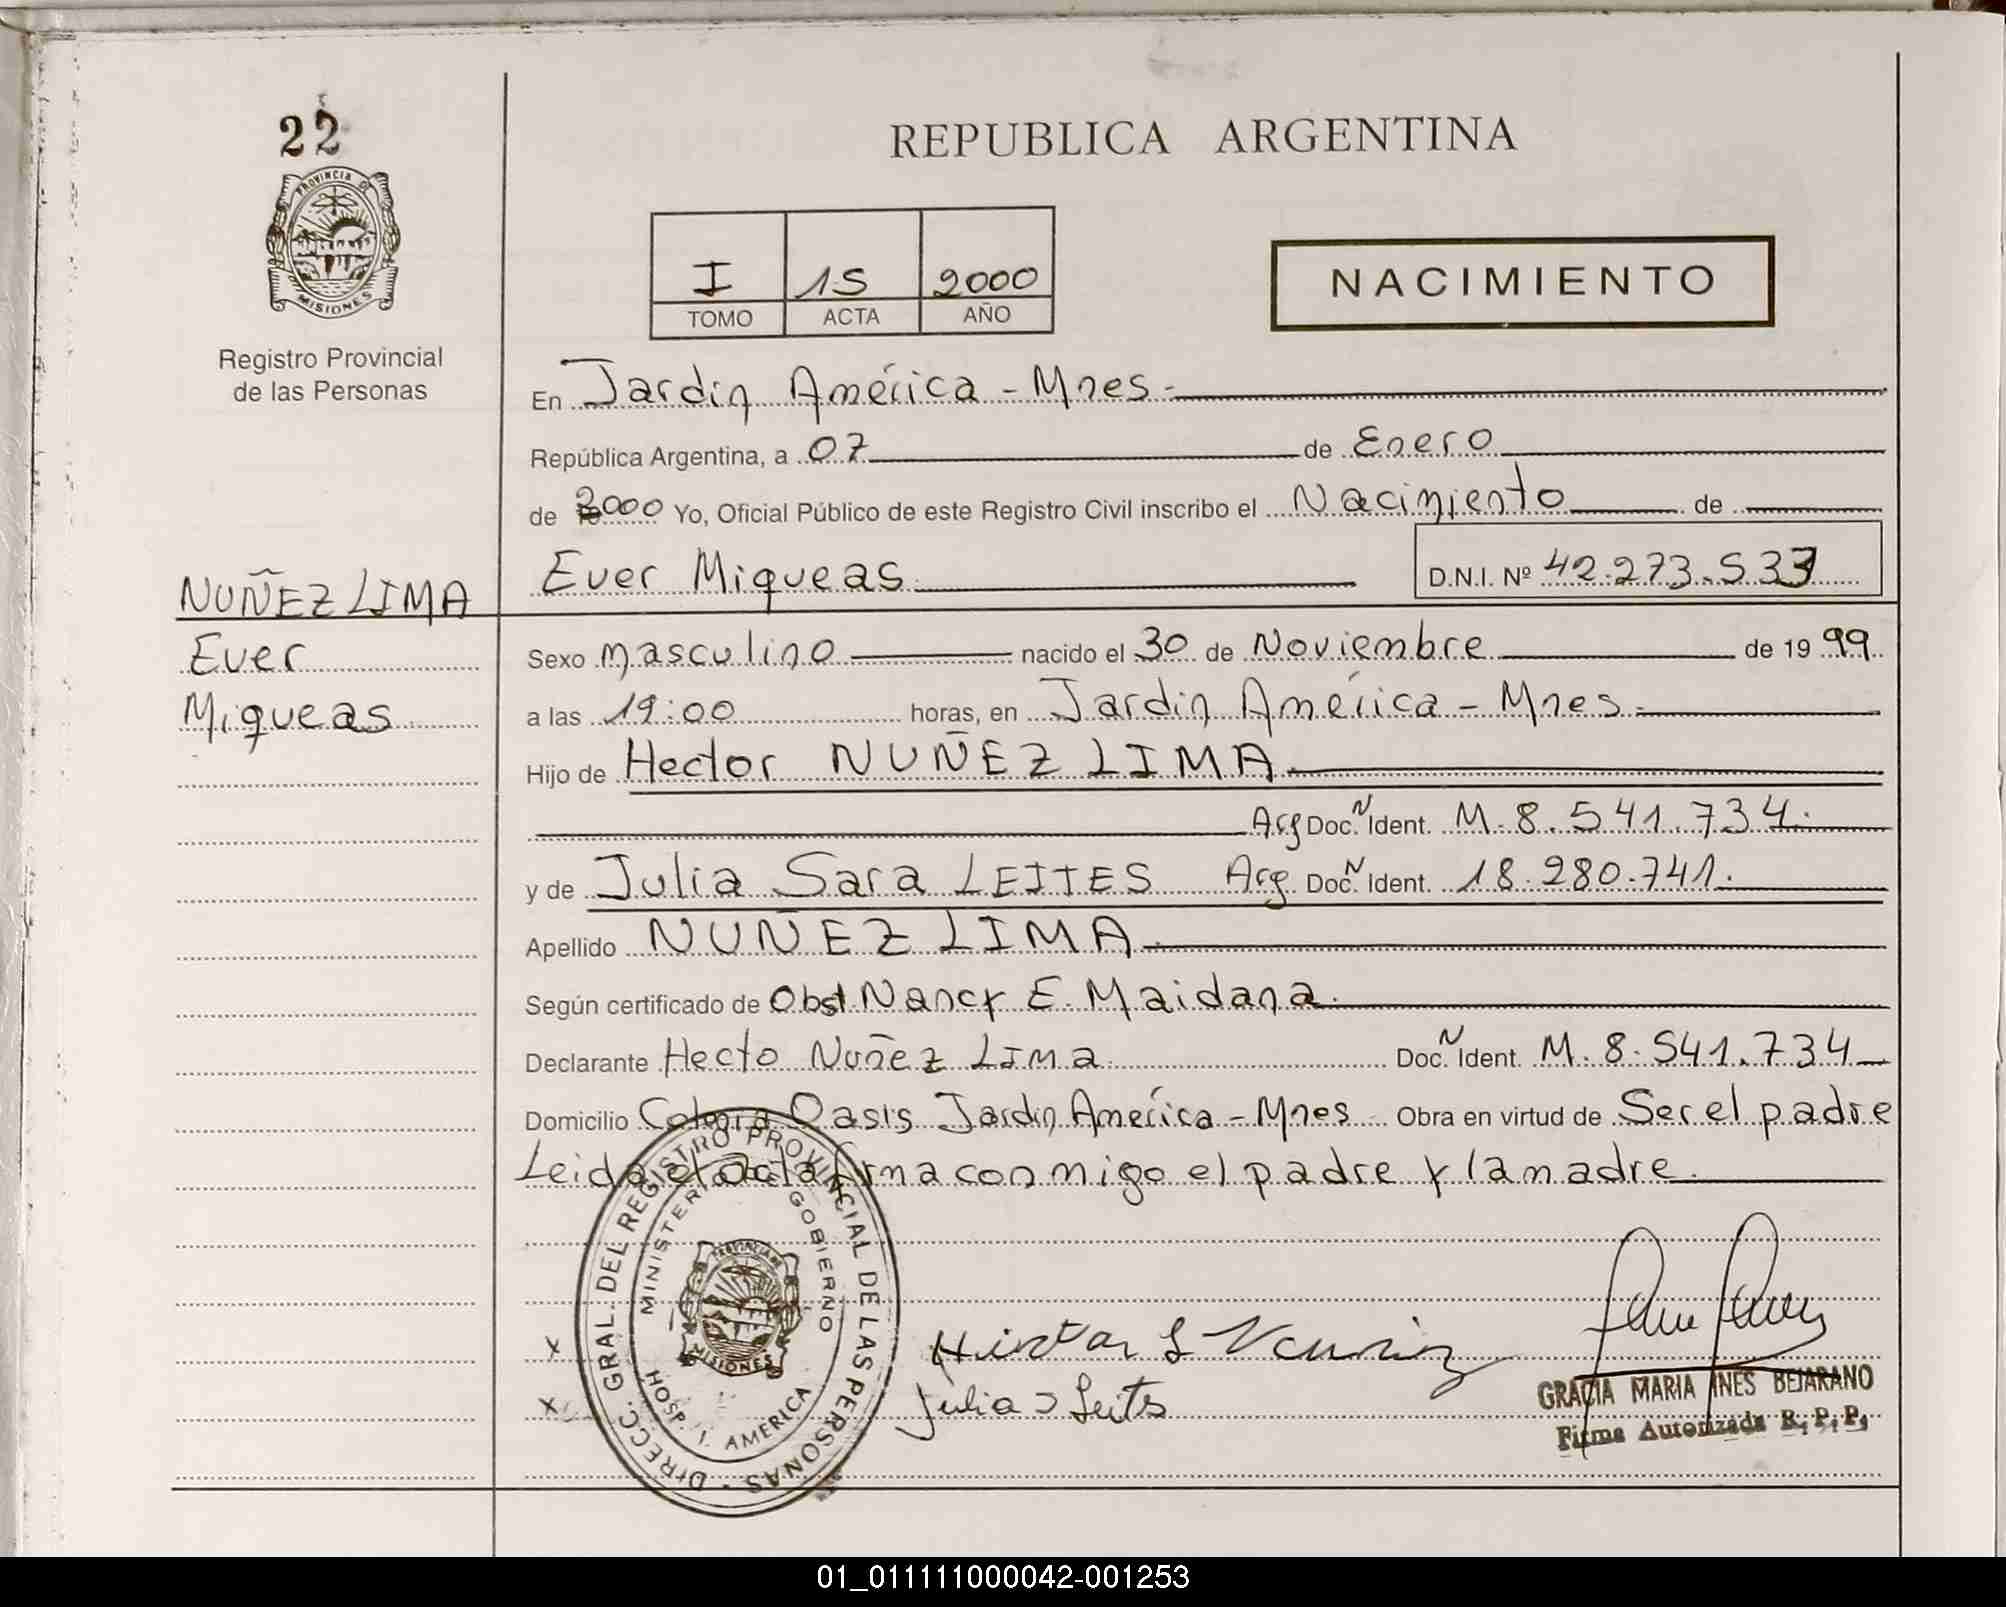 22
PROVINCIA DE
MISIONES
Registro Provincial
de las Personas
REPUBLICA ARGENTINA
I 15 2000
TOMO ACTA AÑO
NACIMIENTO
En Jardin América - Mnes.
República Argentina, a 07 de Enero
de 2000 Yo, Oficial Público de este Registro Civil inscribo el Nacimiento de
Ever Miqueas. D.N.I. Nº 42.273.533
NUÑEZ LIMA
Ever
Miqueas
Sexo masculino nacido el 30 de Noviembre de 19 99
a las 19:00 horas, en Jardin América - Mnes.
Hijo de Hector NUÑEZ LIMA
Arg Doc. N Ident. M. 8.541.734.
y de Julia Sara LEITES Arg. Doc. N Ident. 18.280.741.
Apellido NUÑEZ LIMA.
Según certificado de Obst. Nancy E. Maidana.
Declarante Hecto Nuñez Lima Doc. N Ident. M. 8.541.734
Domicilio Colonia Oasis Jardin América - Mnes Obra en virtud de Ser el padre
Leida el acta firma conmigo el padre y la madre.
DIRECC. GRAL. DEL REGISTRO PROVINCIAL DE LAS PERSONAS
MINISTERIO DE GOBIERNO
PROVINCIA DE
MISIONES
HOSP. J. AMERICA
x
x
Julia S Leites
GRACIA MARIA INES BEJARANO
Firma Autorizada R. P. P.
01_011111000042-001253